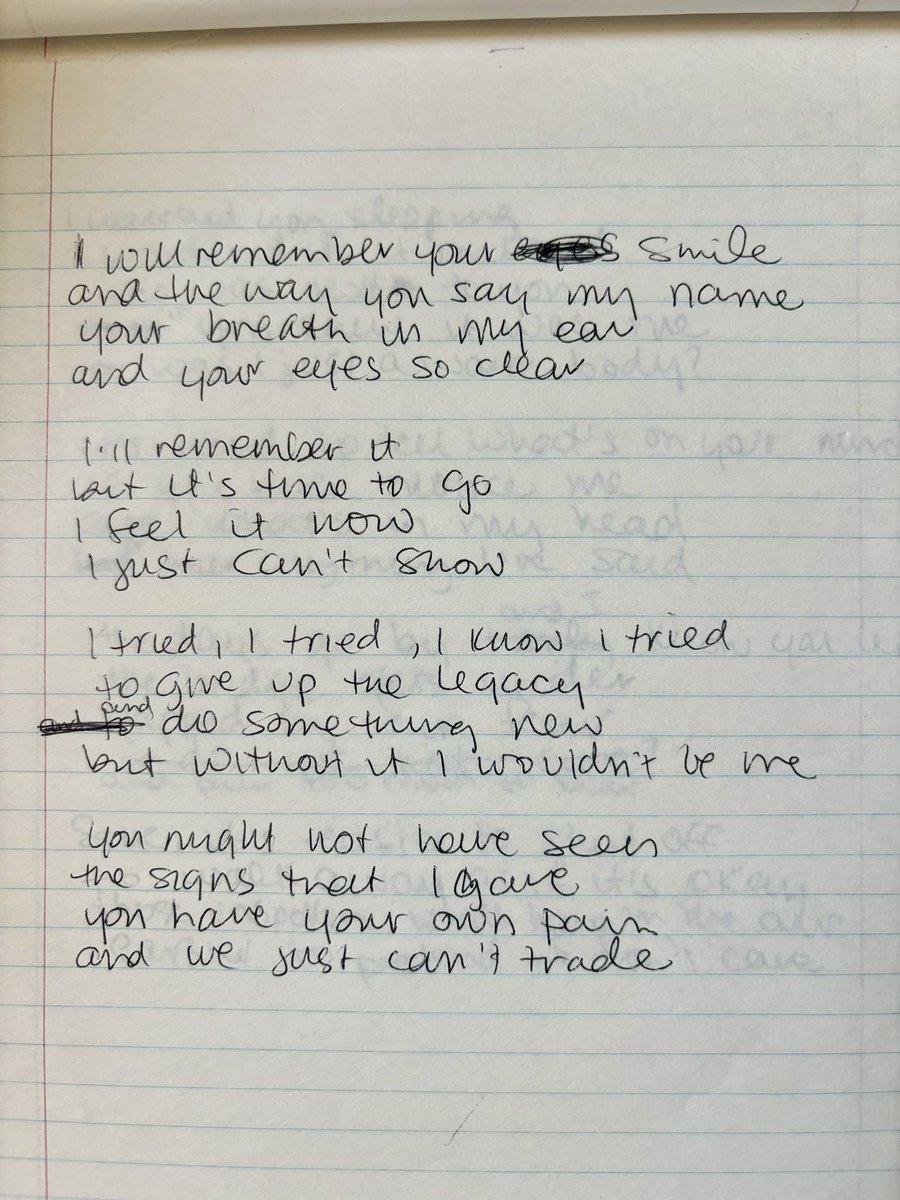 I will remember your smile
and the way you say my name
your breath in my ear
and your eyes so clear
I'll remember it
but it's time to go
I feel it now
I just can't show
I tried, I tried, I know I tried
to give up the legacy
and do something new
but without it I wouldn't be me
you might not have seen
the signs that I gave
you have your own pain
and we just can't trade